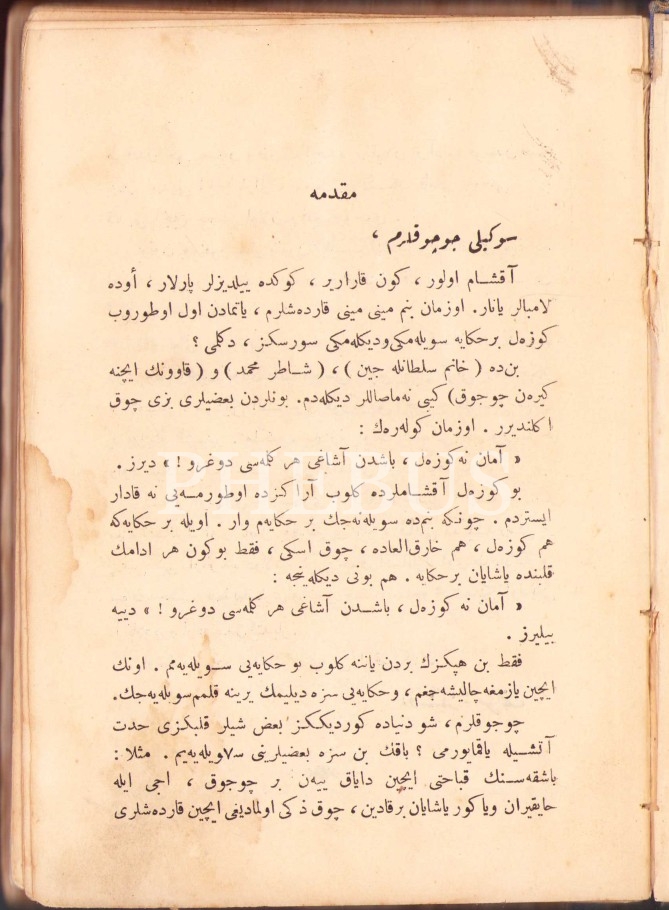 مقدمه
سوكيلى چوجوقلرم ،
آقشـام اولور ، كون قاراریر ، كوكده ییلدیزلر پارلار ، أوده
لامبالر یانار. اوزمان بنم مینی مینی قارده‌شلرم ، یاتمادن اول اوطوروب
كوزه‌ل بر حكایه سویله‌مكى ودیكله‌مكى سورسكز ، دكلمى ؟
بن‌ده ( خانم سلطانله جین ) ، ( شـاطر محمد ) و ( قاوونك ایچنه
كیره‌ن چوجوق) كبى نه‌ماصاللر دیكله‌دم. بونلردن بعضیلرى بزى چوق
اكلندیرر . اوزمان كوله‌رەك :
« آمان نه كوزه‌ل ، باشدن آشاغى هر كلمه‌سى دوغرو ! » دیرز .
بو كوزه‌ل آقشـاملرده كلوب آراكزده اوطورمـه‌یى نه قادار
ایستردم . چونكه بنم‌ده سویله‌نه‌جك بر حكایه‌م وار . اویله بر حكایه‌كه
هم كوزه‌ل ، هم خارق‌العاده ، چوق اسكى ، فقط بوكون هر ادامك
قلبنده یاشایان بر حكایه . هم بونى دیكله‌ینجه :
« آمان نه كوزه‌ل ، باشـدن آشاغى هر كلمه‌سى دوغرو ! » دییه
بیلیرز .
فقط بن هپكزك بردن یاننه كلوب بو حكایه‌یى سـویله‌یه‌مم . اونك
ایچین یازمغه چالیشه‌جغم ، وحكایه‌یى سزه دیلیمك یرینه قلمم سویله‌یه‌جك.
چوجوقلرم ، شو دنیاده كوردیككز بعض شیلر قلبكزى حدت
آتشـیله یاقمایورمى ؟ باقك بن سزه بعضیلرینى س٧ویله‌یه‌یم . مثلا :
باشقه‌سـنك قباحتى ایچین دایاق ییه‌ن بر چوجوق ، اجى ایله
حایقیران ویا كور یاشایان بر قادین ، چوق ذكى اولمادیغى ایچین قارده‌شلرى
PHEBUS